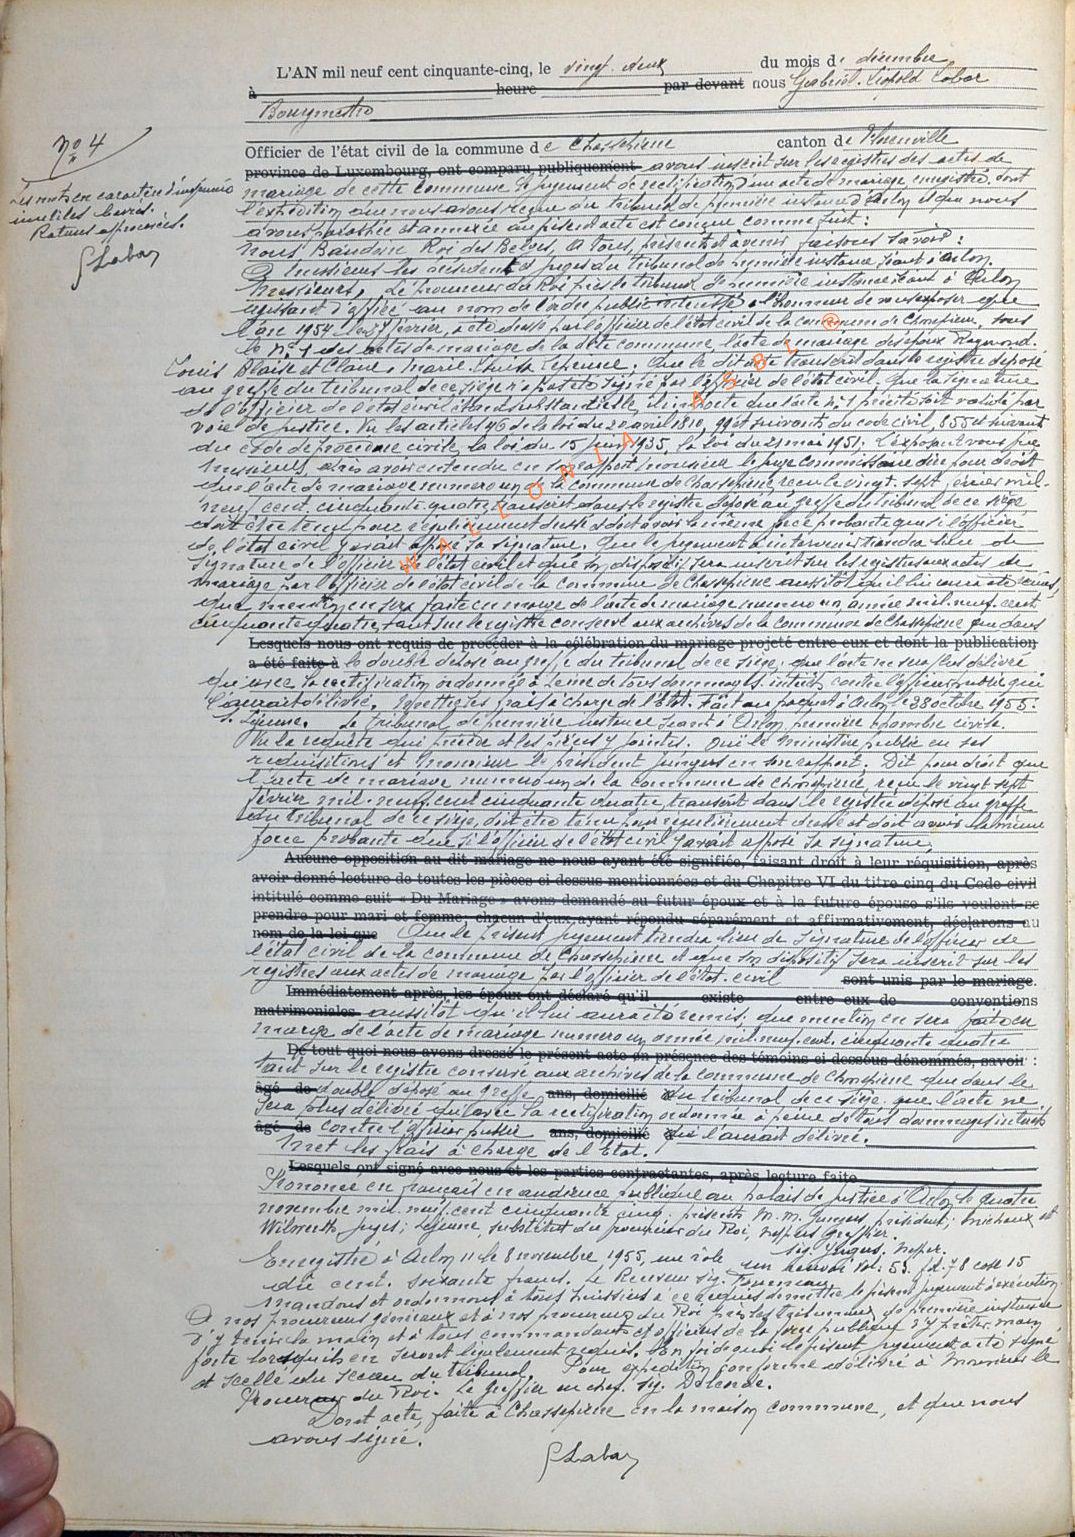 L'AN mil neuf cent cinquante-cinq, le vingt-deux du mois de décembre
à heure par devant nous Gabriel-Léopold Labar
Bourgmestre
Officier de l'état civil de la commune de Chassepierre canton de Florenville
province de Luxembourg, ont comparu publiquement avons inscrit sur les registres des actes de
N° 4
Les mots en caractère d'imprimerie
inutiles barrés.
Ratures approuvées.
GLabar
mariage de cette commune le jugement de rectification d'un acte de mariage, enregistré, dont
l'expédition que nous avons reçue du tribunal de première instance d'Arlon et que nous
avons paraphée et annexée au présent acte est conçue comme suit :
Nous Baudouin Roi des Belges, A tous, présents et à venir faisons savoir :
A Messieurs les président et juges du tribunal de première instance séant à Arlon.
Messieurs, Le procureur du Roi près le tribunal de première instance séant à Arlon
agissant d'office au nom de l'ordre public intéressé a l'honneur de vous exposer que
l'an 1954 le 27 février, acte dressé par l'officier de l'état civil de la commune de Chassepierre, sous
le n° 1 des actes de mariage de la dite commune, l'acte de mariage des époux Raymond-
Louis Blaise et Claire Marie-Louise Lejeune. Que le dit acte transcrit dans le registre déposé
au greffe du tribunal de ce siège n'a pas été signé par l'officier de l'état civil. Que la signature
de l'officier de l'état civil étant substantielle, il importe que l'acte n° 1 précité soit validé par
voie de justice. Vu les articles 46 de la loi du 20 avril 1810, 99 et suivants du code civil, 855 et suivants
du code de procédure civile, la loi du 15 juin 1935, la loi du 21 mai 1951. L'exposant vous prie
Messieurs, après avoir entendu en son rapport, monsieur le juge commissaire dire pour droit
que l'acte de mariage numéro un de la commune de Chassepierre, reçu le vingt-sept février mil-
neuf cent cinquante-quatre, transcrit dans le registre déposé au greffe du tribunal de ce siège,
doit être tenu pour régulièrement dressé et doit avoir la même force probante que si l'officier
de l'état civil y avait apposé sa signature. Que le jugement à intervenir tiendra lieu de
signature de l'officier de l'état civil et que son dispositif sera inscrit sur les registres aux actes de
mariage par l'officier de l'état civil de la commune de Chassepierre aussitôt qu'il lui aura été remis,
que mention en sera faite en marge de l'acte de mariage numéro un, année mil-neuf-cent
cinquante-quatre, tant sur le registre conservé aux archives de la commune de Chassepierre que dans
Lesquels nous ont requis de procéder à la célébration du mariage projeté entre eux et dont la publication
a été faite à le double déposé au greffe du tribunal de ce siège; que l'acte ne sera plus délivré
qu'avec la rectification ordonnée à peine de tous dommages-intérêts contre l'officier public qui
l'aurait délivré. Mettre les frais à charge de l'Etat. Fait au parquet à Arlon le 28 octobre 1955.
s. Lejeune. Le tribunal de première instance séant à Arlon première chambre civile.
Vu la requête qui précède et les pièces y jointes. Ouï le Ministère public en ses
réquisitions et Monsieur le président Jungers en son rapport. Dit pour droit que
l'acte de mariage numéro un de la commune de Chassepierre, reçu le vingt sept
février mil-neuf-cent cinquante quatre, transcrit dans le registre déposé au greffe
du tribunal de ce siège, doit être tenu pour régulièrement dressé et doit avoir la même
force probante que si l'officier de l'état civil y avait apposé sa signature.
Aucune opposition au dit mariage ne nous ayant été signifiée, faisant droit à leur réquisition, après
avoir donné lecture de toutes les pièces ci-dessus mentionnées et du Chapitre VI du titre cinq du Code civil
intitulé comme suit « Du Mariage » avons demandé au futur époux et à la future épouse s'ils veulent se
prendre pour mari et femme; chacun d'eux ayant répondu séparément et affirmativement, déclarons au
nom de la loi que Que le présent jugement tiendra lieu de signature de l'officier de
l'état civil de la commune de Chassepierre et que son dispositif sera inscrit sur les
registres aux actes de mariage par l'officier de l'état-civil sont unis par le mariage.
Immédiatement après, les époux ont déclaré qu'il existe entre eux de conventions
matrimoniales aussitôt qu'il lui aura été remis; que mention en sera faite en
marge de l'acte de mariage numéro un, année mil-neuf-cent cinquante quatre
De tout quoi nous avons dressé le présent acte en présence des témoins ci-dessous dénommés, savoir :
tant sur le registre conservé aux archives de la commune de Chassepierre que dans le
âgé de double déposé au greffe ans, domicilié du tribunal de ce siège, que l'acte ne
sera plus délivré qu'avec la rectification ordonnée à peine de tous dommages intérêts
âgé de contre l'officier public ans, domicilié qui l'aurait délivré.
Met les frais à charge de l'Etat.
Lesquels ont signé avec nous et les parties contractantes, après lecture faite
Prononcé en français en audience publique au palais de justice à Arlon le quatre
novembre mil-neuf-cent cinquante cinq; présents M.M. Jungers, président; Michaux et
Wilmerth juges; Lejeune, substitut du procureur du Roi, greffier.
Enregistré à Arlon 11 le 8 novembre 1955, un rôle un renvoi vol. 53. fol. 78 case 15
dû cent. soixante francs. Le Receveur sig.
Mandons et ordonnons à tous huissiers à ce requis de mettre le présent jugement à exécution.
A nos procureurs généraux et à nos procureurs du Roi près les tribunaux de première instance
d'y tenir la main et à tous commandants et officiers de la force publique d'y prêter main
forte lorsqu'ils en seront légalement requis. En foi de quoi le présent jugement a été signé
et scellé du sceau du tribunal. Pour expédition conforme délivré à Monsieur le
Procureur du Roi. Le Greffier en chef. sig. Delande.
Dont acte, faite à Chassepierre en la maison commune, et que nous
avons signé.
GLabar
WALLONIA ASBL ®